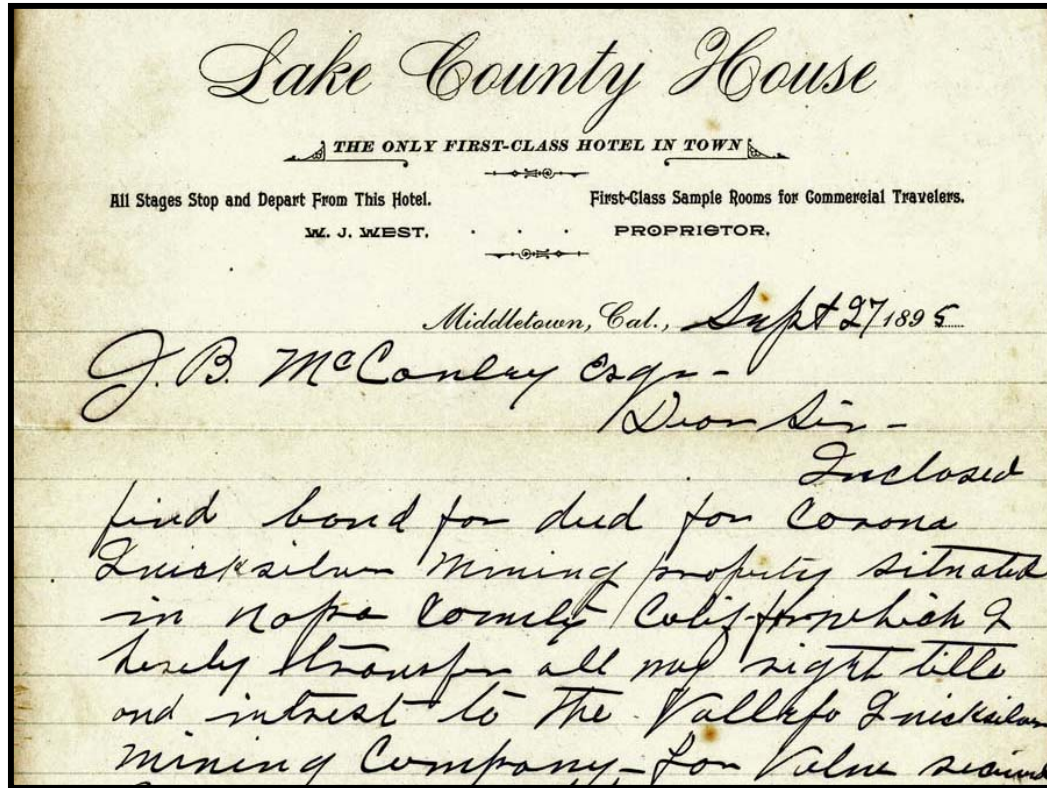 Lake County House
THE ONLY FIRST-CLASS HOTEL IN TOWN
All Stages Stop and Depart From This Hotel. First-Class Sample Rooms for Commercial Travelers.
W. J. WEST, . . . PROPRIETOR.
Middletown, Cal., Sept 27 1895
J. B. McCauley Esqr-
Dear Sir -
Inclosed
find bond for deed for Corona
Quicksilver Mining property situated
in Napa County Calif for which I
hereby transfer all my right title
and intrest to the Vallejo Quicksilver
Mining Company - for Value